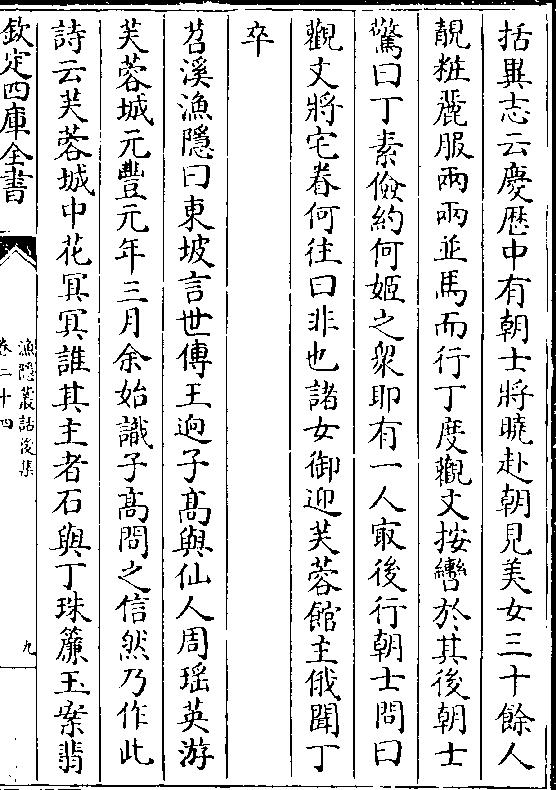 括異志云慶歴中有朝士將曉赴朝見美女三十餘人
靚粧麗服兩兩並馬而行丁度觀文按轡於其後朝士
驚曰丁素儉約何姬之衆耶有一人㝡後行朝士問曰
觀文將宅眷何往曰非也諸女御迎芙蓉館主俄聞丁
卒
苕溪漁隱曰東坡言世傳王逈子髙與仙人周瑶英游
芙蓉城元豐元年三月余始識子髙問之信然乃作此
詩云芙蓉城中花冥冥誰其主者石與丁珠簾玉案翡
欽定四庫全書
漁隱叢話後集
卷二十四
九